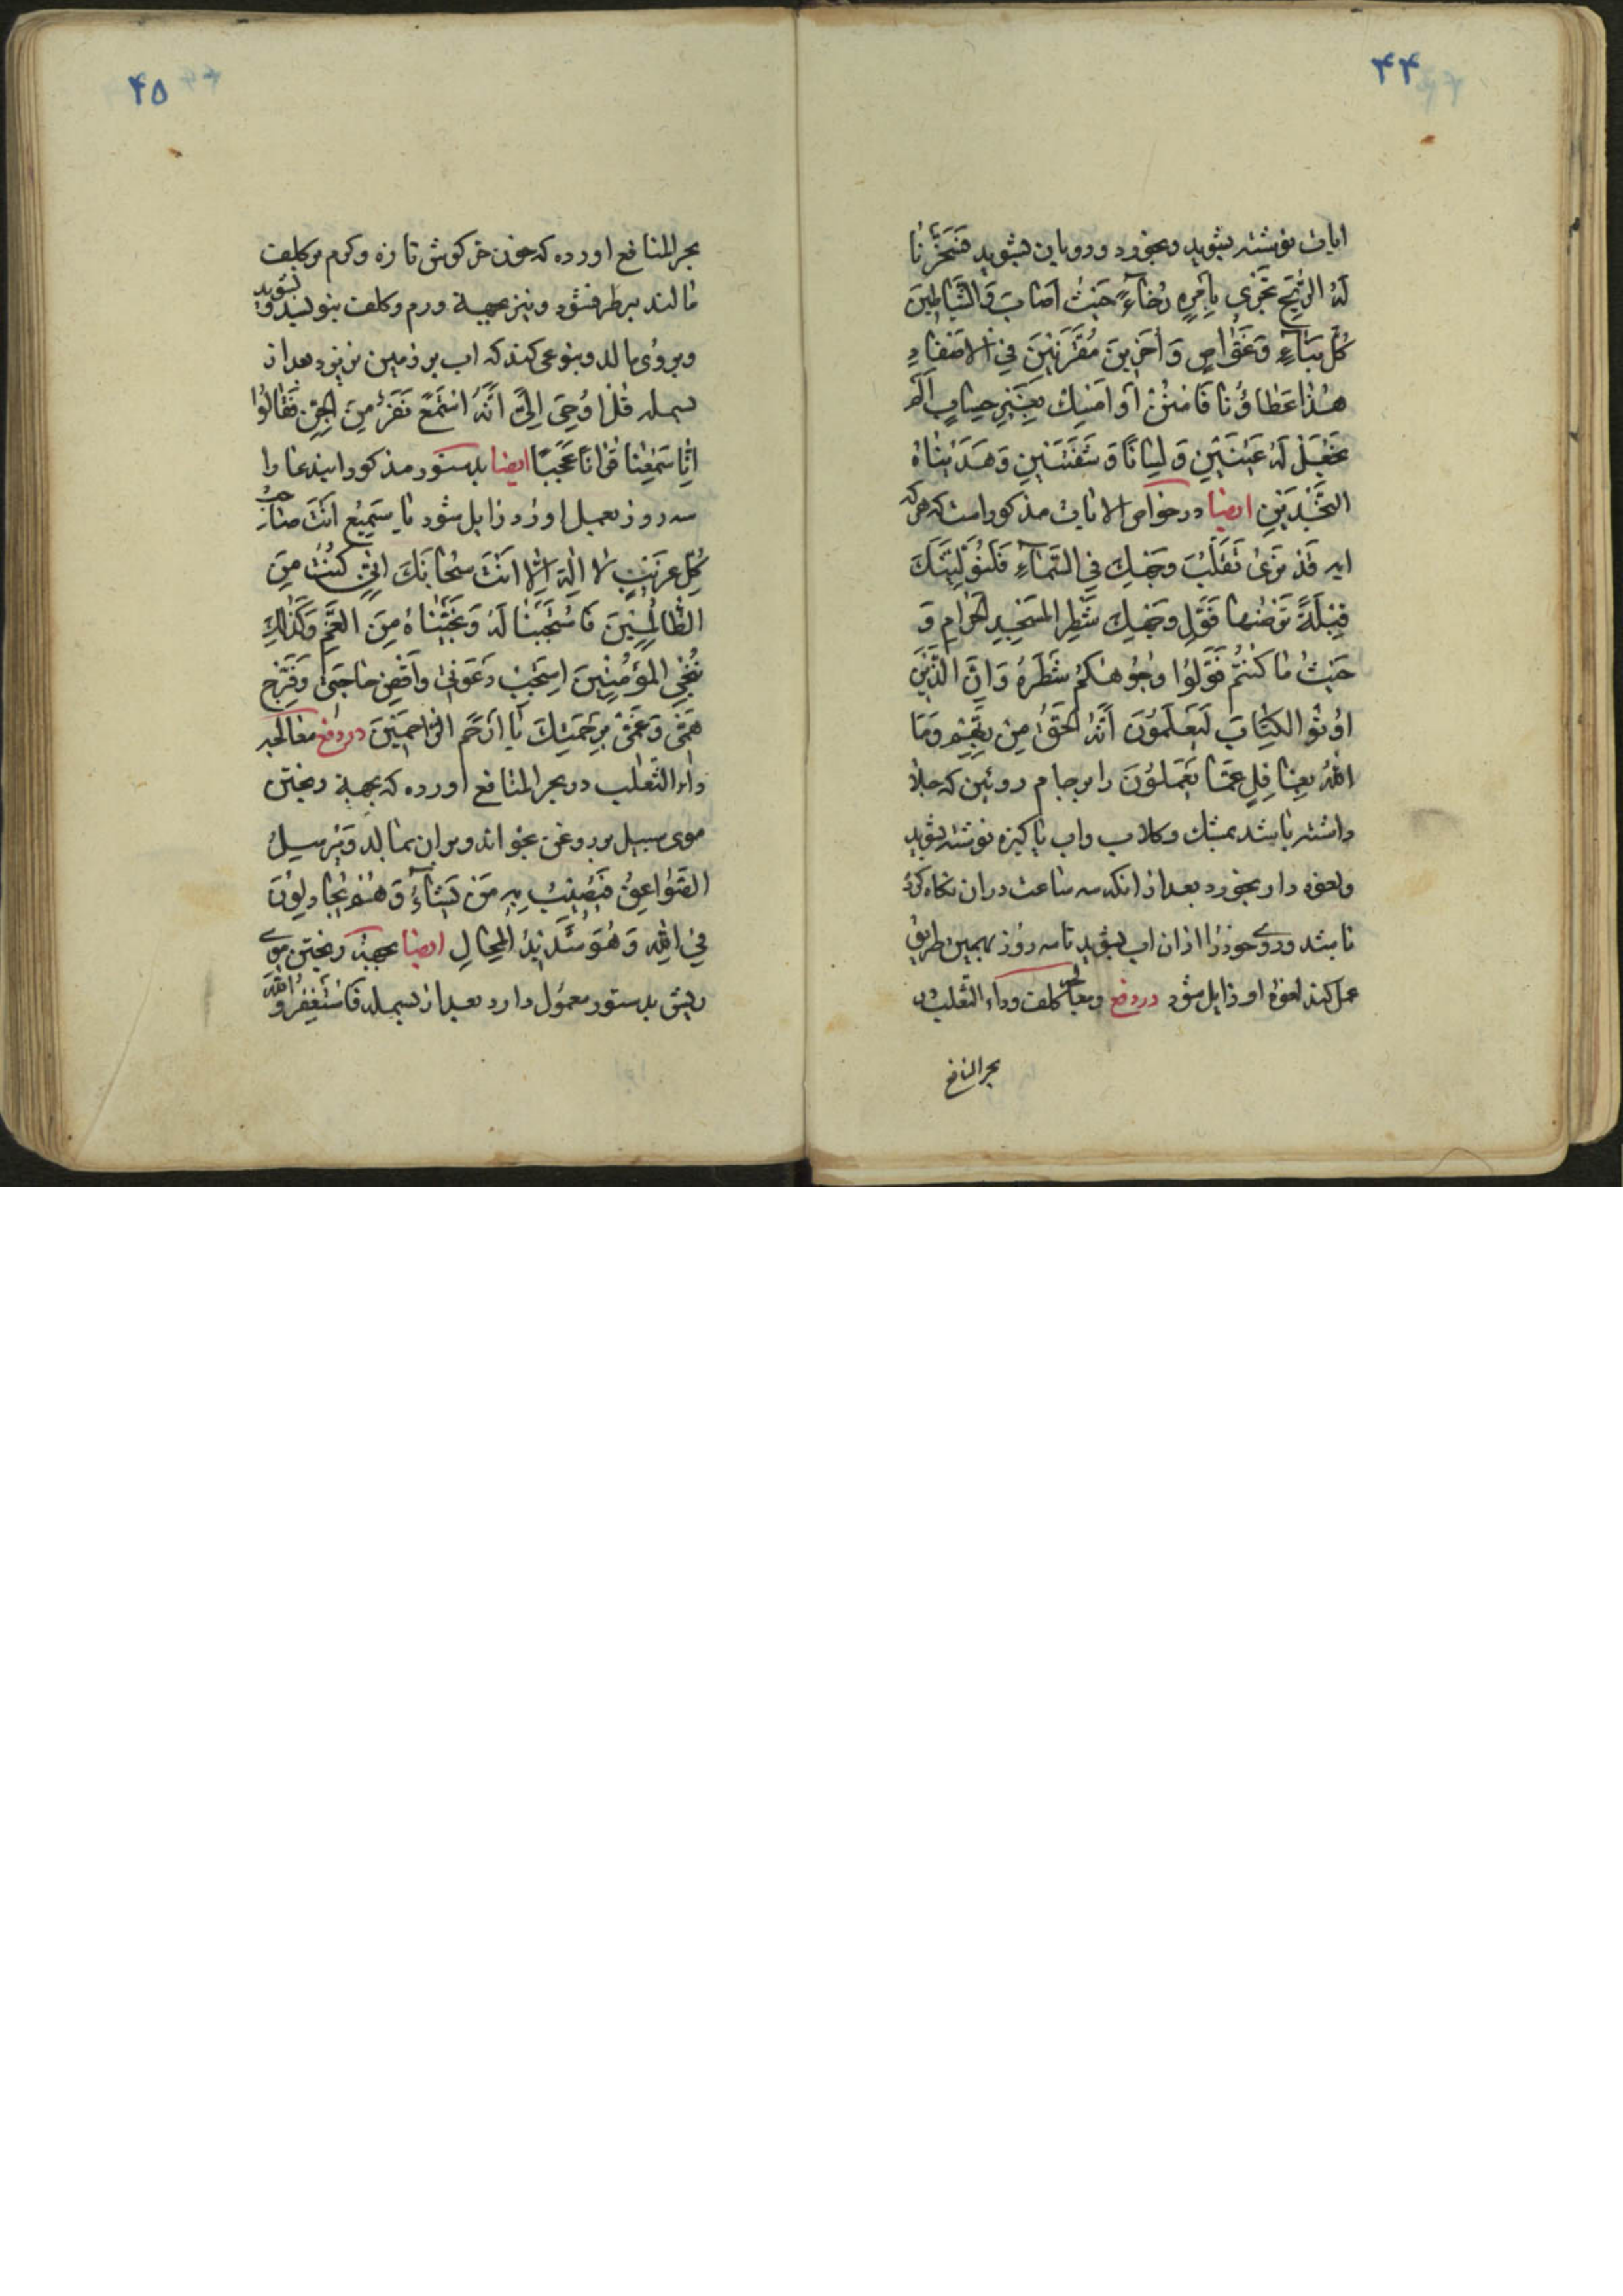 ۴۴
ایات نوشته بشوید و بخورد و رو بان بشوید فَسَخَّرْنَا
لَهُ الرّیحَ تَجْری بِاَمْرِهِ رُخَاءً حَیْثُ اَصَابَ وَالشَّیَاطِینَ
كُلَّ بَنَّاءٍ وَغَوَّاصٍ وَ اٰخَرِینَ مُقَرَّنِینَ فِی الاَصْفَادِ
هٰذَا عَطَاؤُنَا فَامْنُنْ اَوْ اَمْسِكْ بِغَیْرِ حِسَابٍ اَلَمْ
نَجْعَلْ لَهُ عَیْنَیْنِ وَ لِسَانًا وَ شَفَتَیْنِ وَهَدَیْنَاهُ
النَّجْدَیْنِ ایضا در خواص الایات مذکور است که هر که
ایه قَدْ نَرٰی تَقَلُّبَ وَجْهِكَ فِی السَّمَاءِ فَلَنُوَلِّیَنَّكَ
قِبْلَةً تَرْضٰیهَا فَوَلِّ وَجْهَكَ شَطْرَ المَسْجِدِ الْحَرَامِ وَ
حَیْثُ مَا كُنْتُمْ فَوَلُّوا وُجُوهَكُمْ شَطْرَهُ وَ اِنَّ الَّذِینَ
اُوتُوا الكِتَابَ لَیَعْلَمُونَ اَنَّهُ الْحَقُّ مِنْ رَبِّهِمْ وَمَا
اللهُ بِغَافِلٍ عَمَّا یَعْمَلُونَ را بر جام روئین که جلا
داشته باشد بمشك و كلاب و اب پاکیزه نوشته بشوید
و لعوه دار بخورد بعد از انکه سه ساعت در ان نکاه کرده
باشد و روی خود را از ان اب بشوید تا سه روز بهمین طریق
عمل کند لعوهٔ او زایل شود در دفع و معالجه کلف و داء الثعلب در
بحر المنافع
۴۵
بحر المنافع اورده که خون خرکوش تازه و کرم بر کلف
مالند برطرف شود و نیز بجهة ورم و کلف بنویسد و بشوید
و بروی مالد و بنوعی کند که اب بر زمین نریزد بعد از
بسمله قُلْ اُوحِیَ اِلَیَّ اَنَّهُ اسْتَمَعَ نَفَرٌ مِنَ الْجِنِّ فَقَالُوا
اِنَّا سَمِعْنَا قُرْاٰنًا عَجَبًا ایضا بدستور مذکور ایندعا را
سه روز بعمل اورد زایل شود یَا سَمِیعُ اَنْتَ صَاحِبُ
كُلِّ غَرِیبٍ لَا اِلٰهَ اِلَّا اَنْتَ سُبْحَانَكَ اِنِّی كُنْتُ مِنَ
الظَّالِمِینَ فَاسْتَجَبْنَا لَهُ وَ نَجَّیْنَاهُ مِنَ الغَمِّ وَ كَذٰلِكَ
نُنْجِی المُؤْمِنِینَ اِسْتَجِبْ دَعْوَتِی وَاقْضِ حَاجَتِی وَ فَرِّجْ
هَمِّی وَ غَمِّی بِرَحْمَتِكَ یَا اَرْحَمَ الرَّاحِمِینَ در دفع معالجه
داء الثعلب در بحر المنافع اورده که بجهة ریختن
موی سبیل بر روغن بخواند و بر ان بمالد وَ یُرْسِلُ
الصَّوَاعِقَ فَیُصِیبُ بِهِ مَنْ یَشَاءُ وَ هُمْ یُجَادِلُونَ
فِی اللهِ وَ هُوَ شَدِیدُ المِحَالِ ایضا بجهة ریختن موی
ریش بدستور معمول دارد بعد از بسمله فَاسْتَغْفِرُوا اللهَ